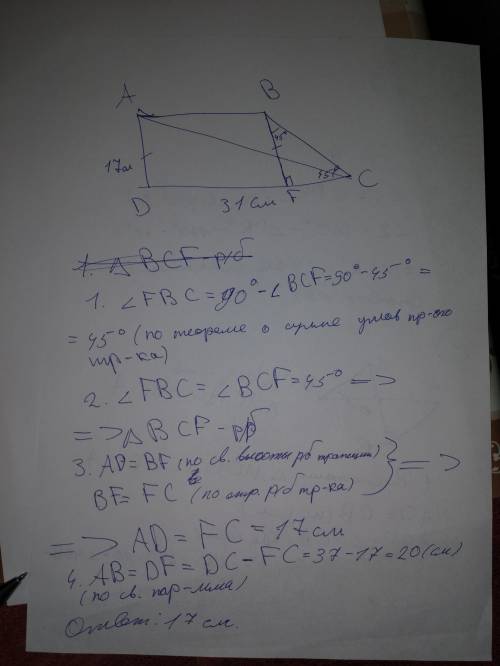 A
B
45°
17см
45°
C
D
31 см
F
1. △ BCF - р/б
1. ∠FBC = 90° - ∠BCF = 90° - 45° =
= 45° (по теореме о сумме углов пр-ого
тр-ка)
2. ∠FBC = ∠BCF = 45° =>
=> △ BCF - р/б
3. AD = BF (по св. высоты р/б трапеции)
BF = FC (по опр. р/б тр-ка) =>
=> AD = FC = 17 см
4. AB = DF = DC - FC = 37 - 17 = 20 (см)
(по св. пар-мма)
Ответ: 17 см.